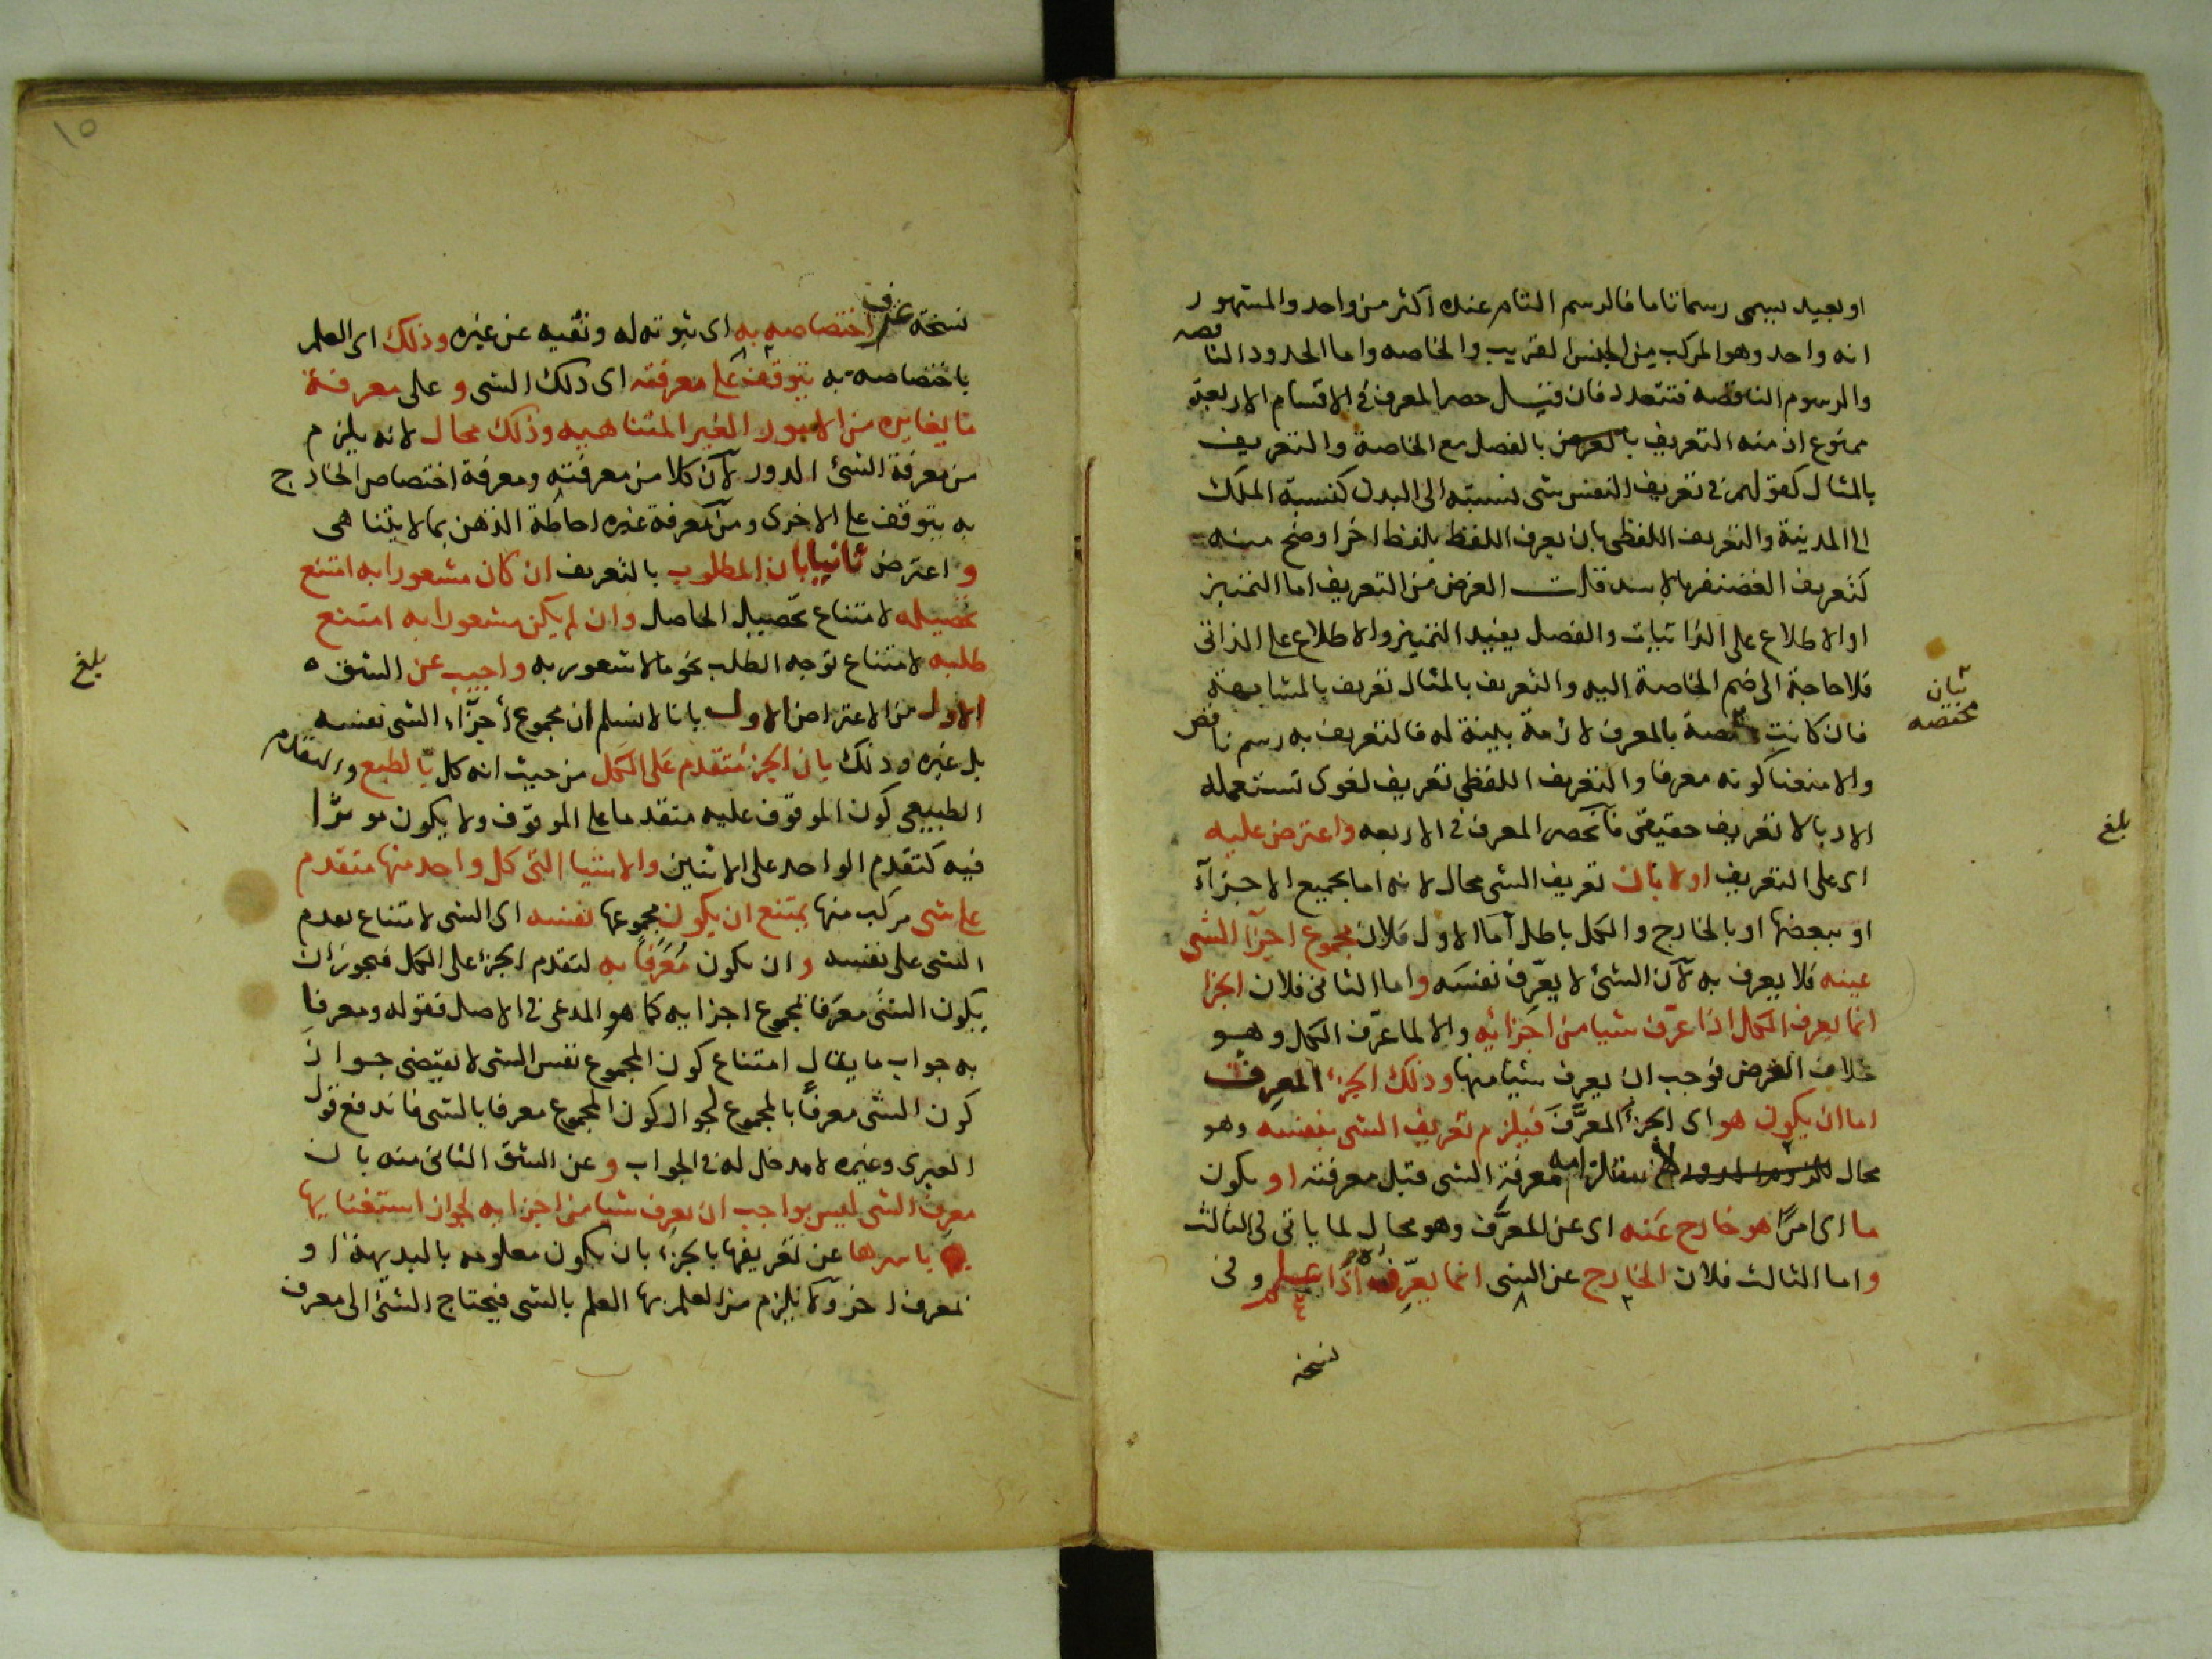 او بعيد يسمى رسما تاما فالرسم التام عنده اكثر من واحد والمشهور
انه واحد وهو المركب من الجنس القريب والخاصه واما الحدود الناقصه
والرسوم الناقصه فتتعدد فان قيل حصر المعرف في الاقسام الاربعة
ممنوع اذ منه التعريف بالفصل مع الخاصة والتعريف
بالمثال كقولهم في تعريف النفس شى نسبته الى البدن كنسبة الملك
الى المدينة والتعريف اللفظى بان يعرف اللفظ بلفظ اخر اوضح منه
كتعريف الغضنفر بالاسد قلت الغرض من التعريف اما التمييز
او الاطلاع على الذاتيات والفصل يفيد التمييز والاطلاع على الذاتى
فلا حاجة الى ضم الخاصة اليه والتعريف بالمثال تعريف بالمشابهة
فان كانت مختصة بالمعرف لازمة بينة له فالتعريف به رسم ناقص
والا منعنا كونه معرفا والتعريف اللفظى تعريف لغوى تستعمله
الادبا لا تعريف حقيقى فانحصر المعرف في الاربعه واعترض عليه
اى على التعريف اولا بان تعريف الشى محال لانه اما بجميع الاجزآء
او ببعضها او بالخارج والكل باطل اما الاول فلان مجموع اجزآ الشى
عينه فلا يعرف به لان الشئ لا يعرّف نفسَه واما الثانى فلان الجزا
انما يعرف الكل اذا عرّف شيا من اجزائه والا لما عرّف الكل وهو
خلاف الفرض فوجب ان يعرف شيا منها وذلك الجزء المعرِف
اما ان يكون هو اى الجزء المعرَّف فيلزم تعريف الشى بنفسه وهو
محال لاستلزامه معرفة الشى قبل معرفته او يكون
ما اى امرًا هو خارج عَنه اى عن المعرَّف وهو محال لما ياتى فى الثالث
واما الثالث فلان الخارج عن الشى انما يعرّفه اذا علم وفى
نسخة
ثيان
مختصه
بلغ
١٥
نسخة عرف اختصاصه به اى ثبوته له ونفيه عن غيره وذلك اى العلم
باختصاصه به يتوقف على معرفته اى ذلك الشى وعلى معرفة
ما يغايره من الامور الغير المتناهيه وذلك محال لانه يلزم
من معرفة الشئ الدور لان كلا من معرفته ومعرفة اختصاص الخارج
به يتوقف على الاخرى ومن معرفة غيره احاطة الذهن بما لا يتناهى
واعترض ثانيا بان المطلوب بالتعريف ان كان مشعورا به امتنع
تحصيله لامتناع تحصيل الحاصل وان لم يكن مشعورا به امتنع
طلبه لامتناع توجه الطلب نحو ما لا شعور به واجيب عن الشق
الاول من الاعتراض الاول بانا لا نسلم ان مجموع اجزآء الشى نفسه
بل غيره وذلك بان الجزء متقدم على الكل من حيث انه كل بالطبع والتقدم
الطبيعى كون الموقوف عليه متقدما على الموقوف ولا يكون موثرا
فيه كتقدم الواحد على الاثنين والاشيا التى كل واحد منها متقدم
على شى مركب منها يمتنع ان يكون مجموعها نفسه اى الشى لامتناع تقدم
الشى على نفسه وان يكون مُعَرفاً به لتقدم الجزء على الكل فيجوز ان
يكون الشئ معرَفا بمجموع اجزايه كما هو المدعى فى الاصل فقوله ومعرفا
به جواب ما يقال امتناع كون المجموع نفس الشى لا يقتضى جواز
كون الشئ معرفاً بالمجموع لجواز كون المجموع معرفا بالشى فاندفع قول
العبرى وغيره لا مدخل له فى الجواب وعن الشق الثانى منه بان
معرف الشى ليس بواجب ان يعرف شيا من اجزايه لجواز استغنايها
باسرها عن تعريفها بالجزء بان يكون معلومه بالبديهة او
بمعرف اخر ولا يلزم من العلم بها العلم بالشى فيحتاج الشئ الى معرف
بلغ